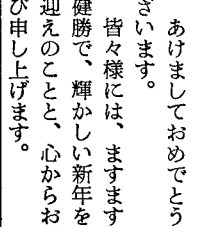 あけましておめでとう
ざいます。
皆々様には、ますます
健勝で、輝かしい新年を
迎えのことと、心からお
び申し上げます。